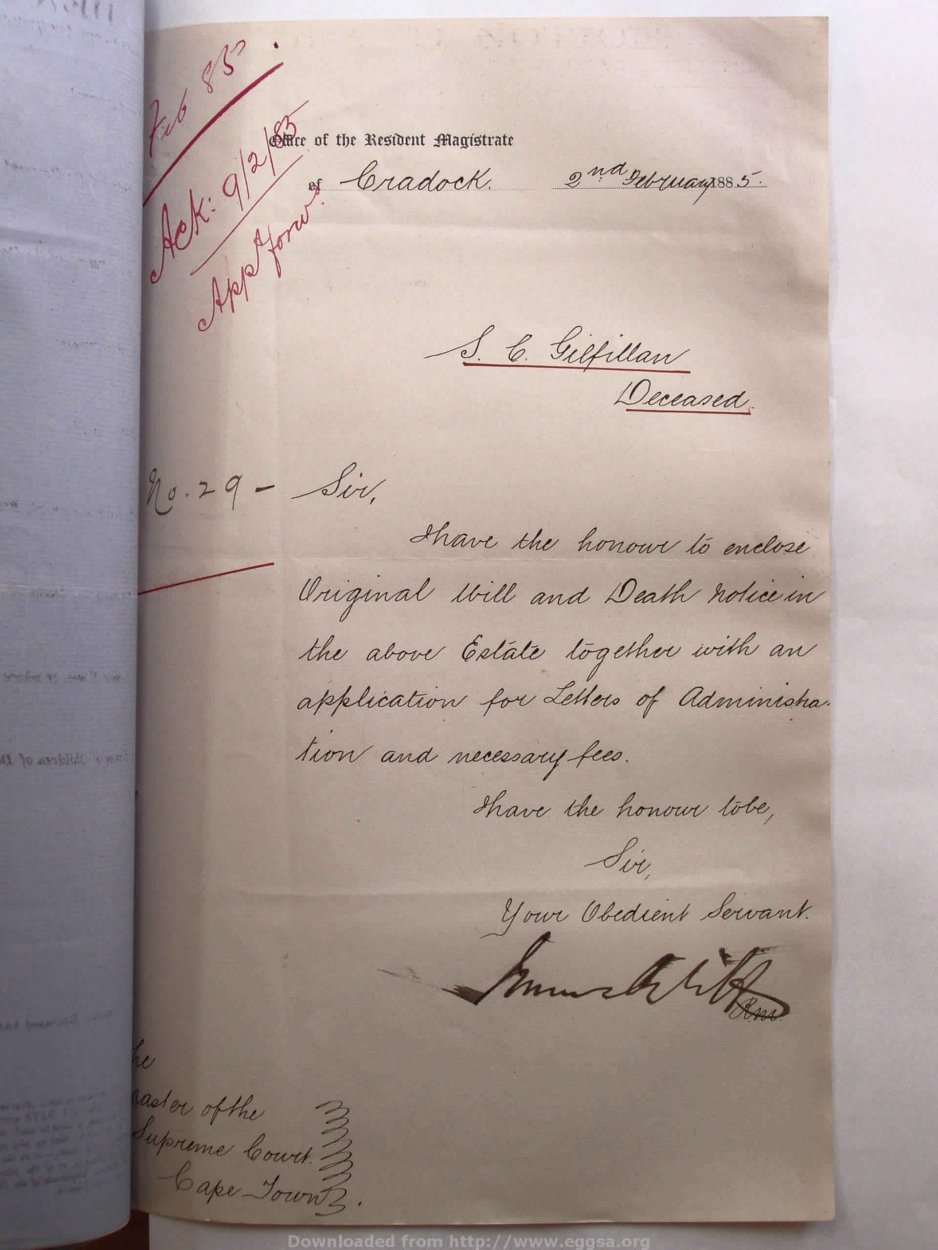 Feb 85.
Ack: 9/2/85
App forwd.
Office of the Resident Magistrate
of Cradock. 2nd February 1885.
S. C. Gilfillan
Deceased.
No. 29 - Sir,
I have the honour to enclose
Original Will and Death Notice in
the above Estate together with an
application for Letters of Administra-
tion and necessary fees.
I have the honour to be,
Sir,
Your Obedient Servant.
RM
he
aster of the
Supreme Court
Cape Town.
Downloaded from http://www.eggsa.org